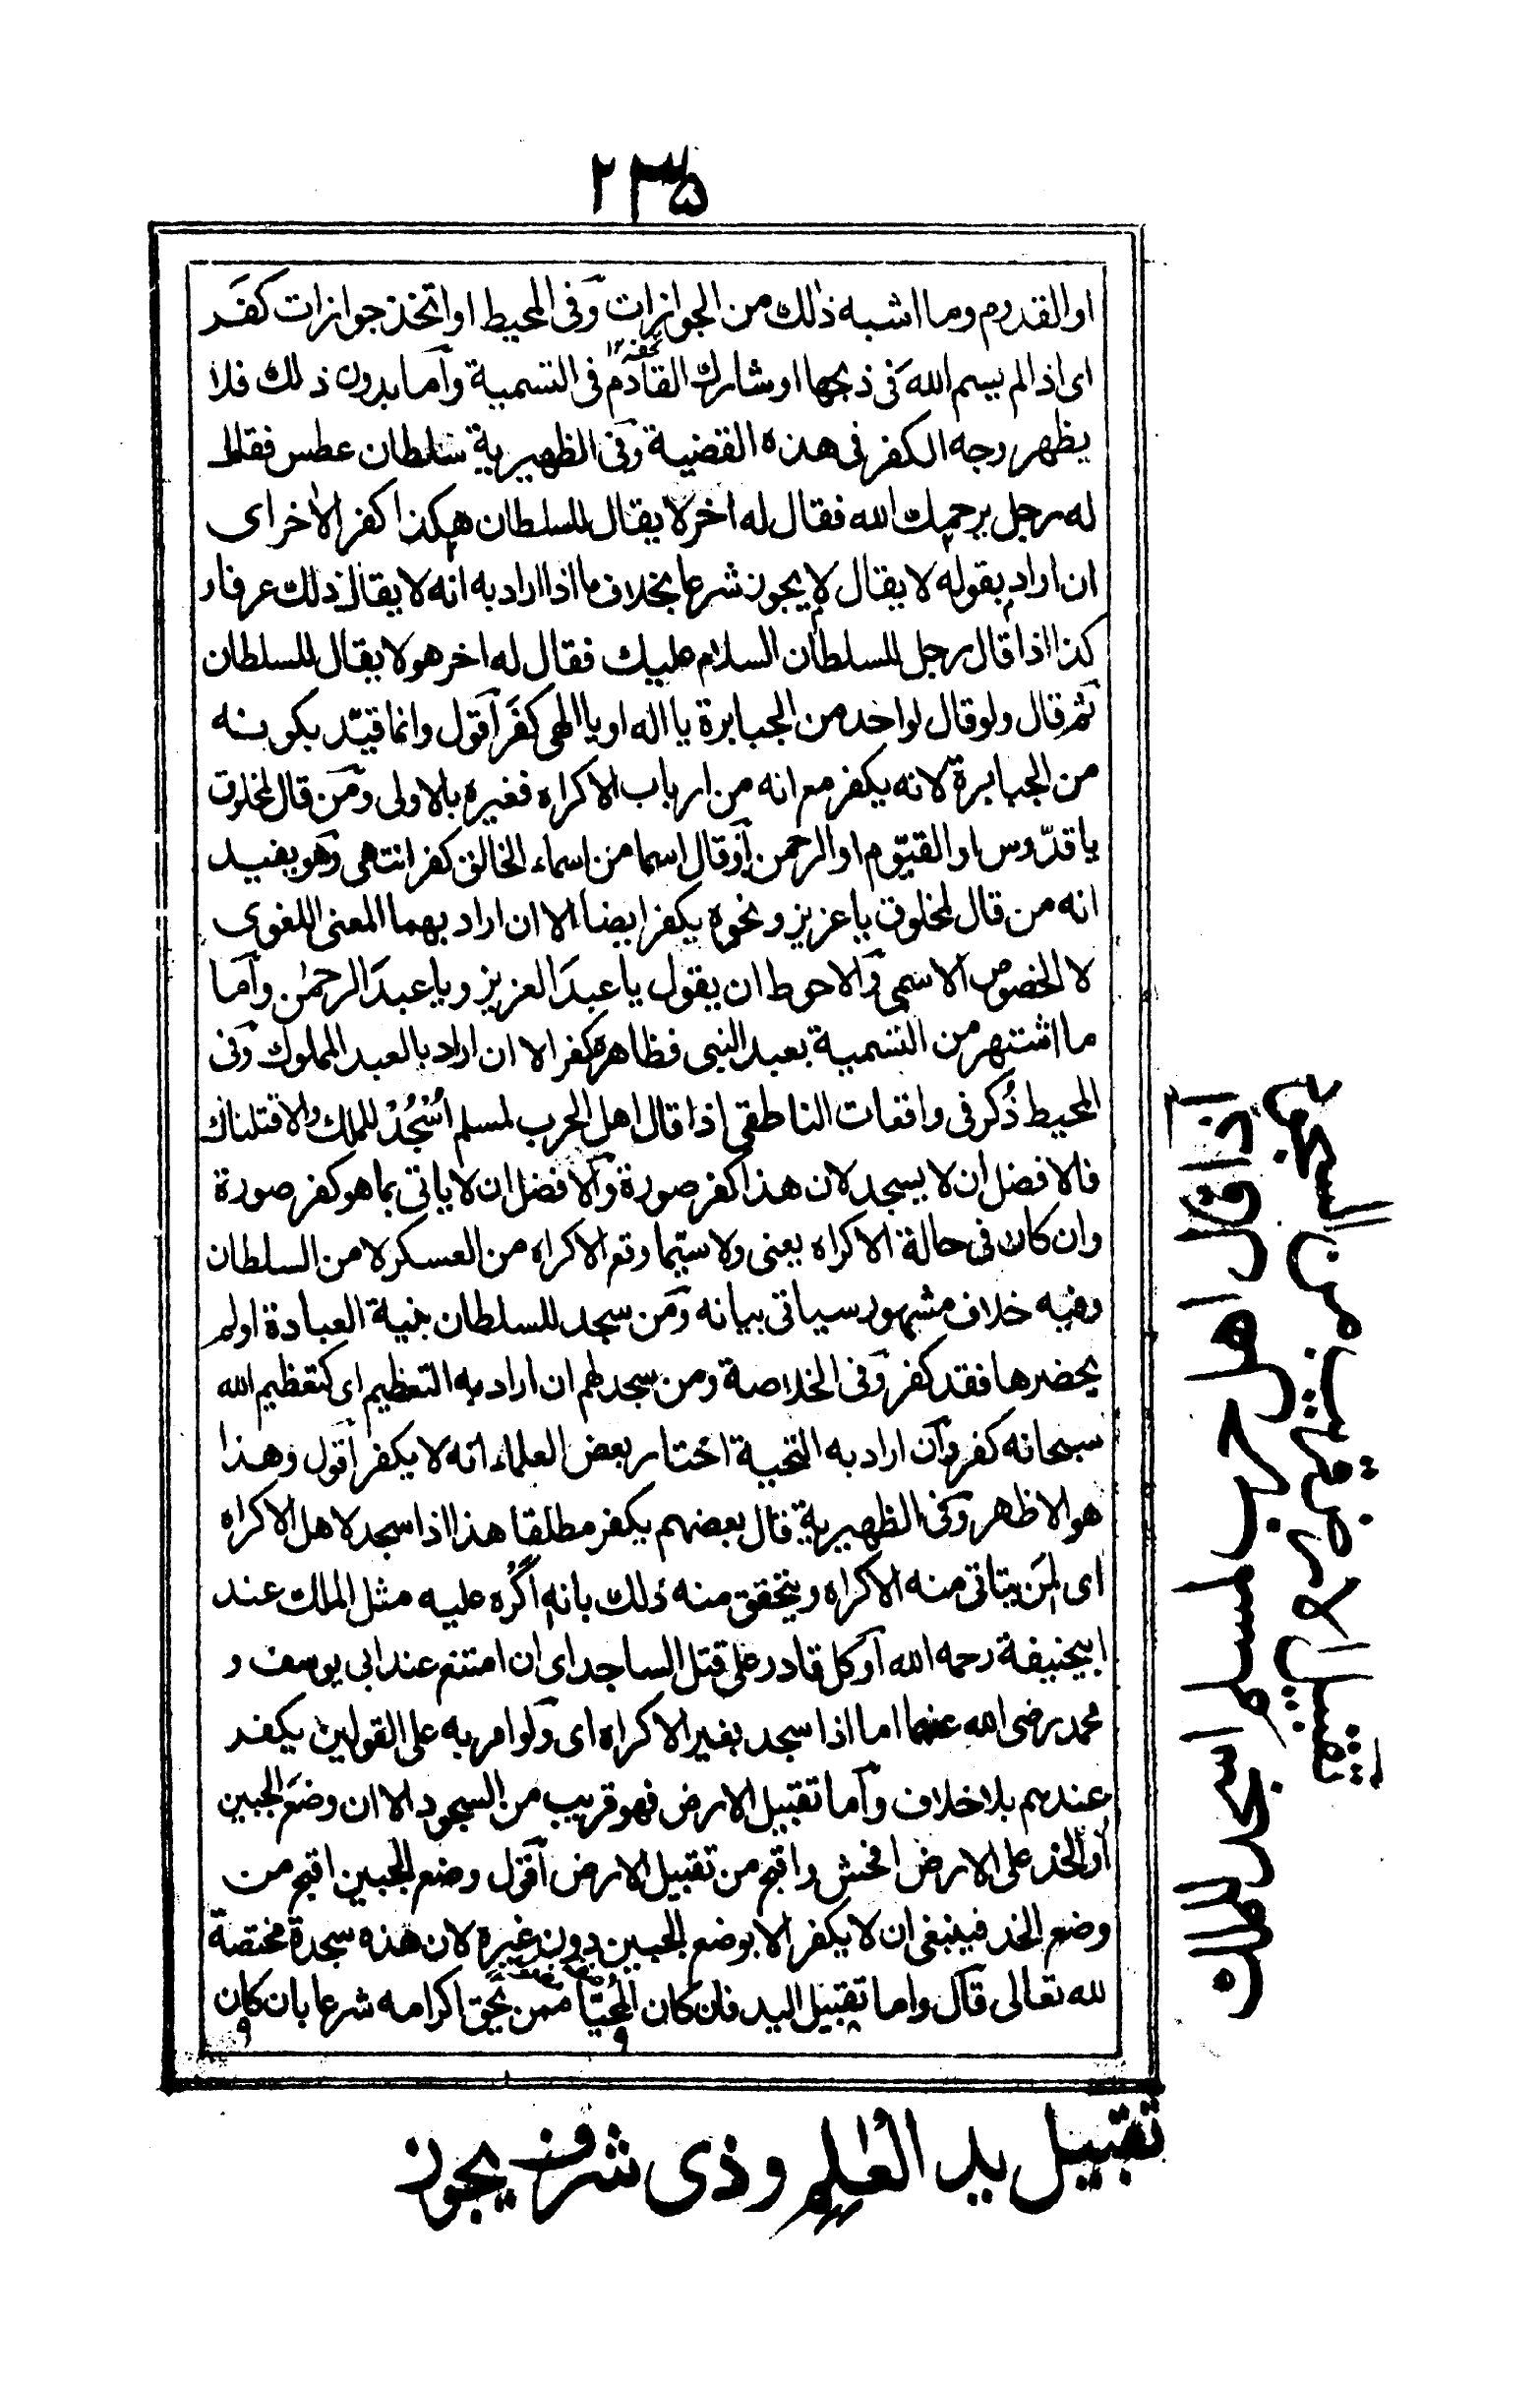 ٢٣٥
او القدوم وما اشبه ذلك من الجوازات وفى المحيط او اتخذ جوازات كفر
اى اذا لم يسم الله فى ذبحها او شارك القادم فى التسمية وأما بدون ذلك فلا
يظهر وجه الكفر فى هذه القضية وفى الظهيرية سلطان عطس فقال
له رجل يرحمك الله فقال له اخر لا يقال للسلطان هكذا كفر الاخر اى
ان اراد بقوله لا يقال لا يجوز شرعا بخلاف ما اذا اراد به انه لا يقال ذلك عرفا و
كذا اذا قال رجل للسلطان السلام عليك فقال له اخر هو لا يقال للسلطان
ثم قال ولو قال لواحد من الجبابرة يا اله او يا الهى كفر أقول وانما قيّد بكونه
من الجبابرة لانه يكفر مع انه من ارباب الاكراه فغيره بالاولى ومن قال لمخلوق
يا قدّوس او القيّوم او الرحمن أو قال اسما من اسماء الخالق كفر انتهى وهو يفيد
انه من قال لمخلوق يا عزيز ونحوه يكفر ايضا الا ان اراد بهما المعنى اللغوى
لا الخصوص الاسمى والاحوط ان يقول يا عبد العزيز ويا عبد الرحمٰن وأما
ما اشتهر من التسمية بعبد النبى فظاهره كفر الا ان اراد بالعبد المملوك وفى
المحيط ذُكر فى واقعات الناطقى اذا قال اهل الحرب لمسلم اُسْجُدْ للملك والا قتلناك
فالافضل ان لا يسجد لان هذا كفر صورة والافضل ان لا ياتى بما هو كفر صورة
وان كان فى حالة الاكراه يعنى ولا سيّما وقع الاكراه من العسكر لا من السلطان
وفيه خلاف مشهور سياتى بيانه ومن سجد للسلطان بنية العبادة او لم
يحضرها فقد كفر وفى الخلاصة ومن سجد لهم ان اراد به التعظيم اى كتعظيم الله
سبحانه كفر وان اراد به التحية اختار بعض العلماء انه لا يكفر أقول وهذا
هو الاظهر وفى الظهيرية قال بعضهم يكفر مطلقا هذا اذا سجد لاهل الاكراه
اى لمن يتاتى منه الاكراه ويتحقق منه ذلك بانه اُكْرِه عليه مثل الملك عند
ابيحنيفة رحمه الله أو كل قادر على قتل الساجد اى ان امتنع عند ابى يوسف و
محمد رضى الله عنهما اما اذا سجد بغير الاكراه اى ولو امر به على القولين يكفر
عندهم بلا خلاف وأما تقبيل الارض فهو قريب من السجود الا ان وضع الجبين
أو الخد على الارض افحش واقبح من تقبيل الارض أقول وضع الجبين اقبح من
وضع الخد فينبغى ان لا يكفر الا بوضع الجبين دون غيره لان هذه سجدة مختصة
لله تعالى قال واما تقبيل اليد فان كان المُحيّا ممن يحق اكرامه شرعا بان كان
اذا قال اهل حرب لمسلم اسجد للملك
تقبيل الارض قريب من السجود
تقبيل يد العٰلم وذى شرف يجوز